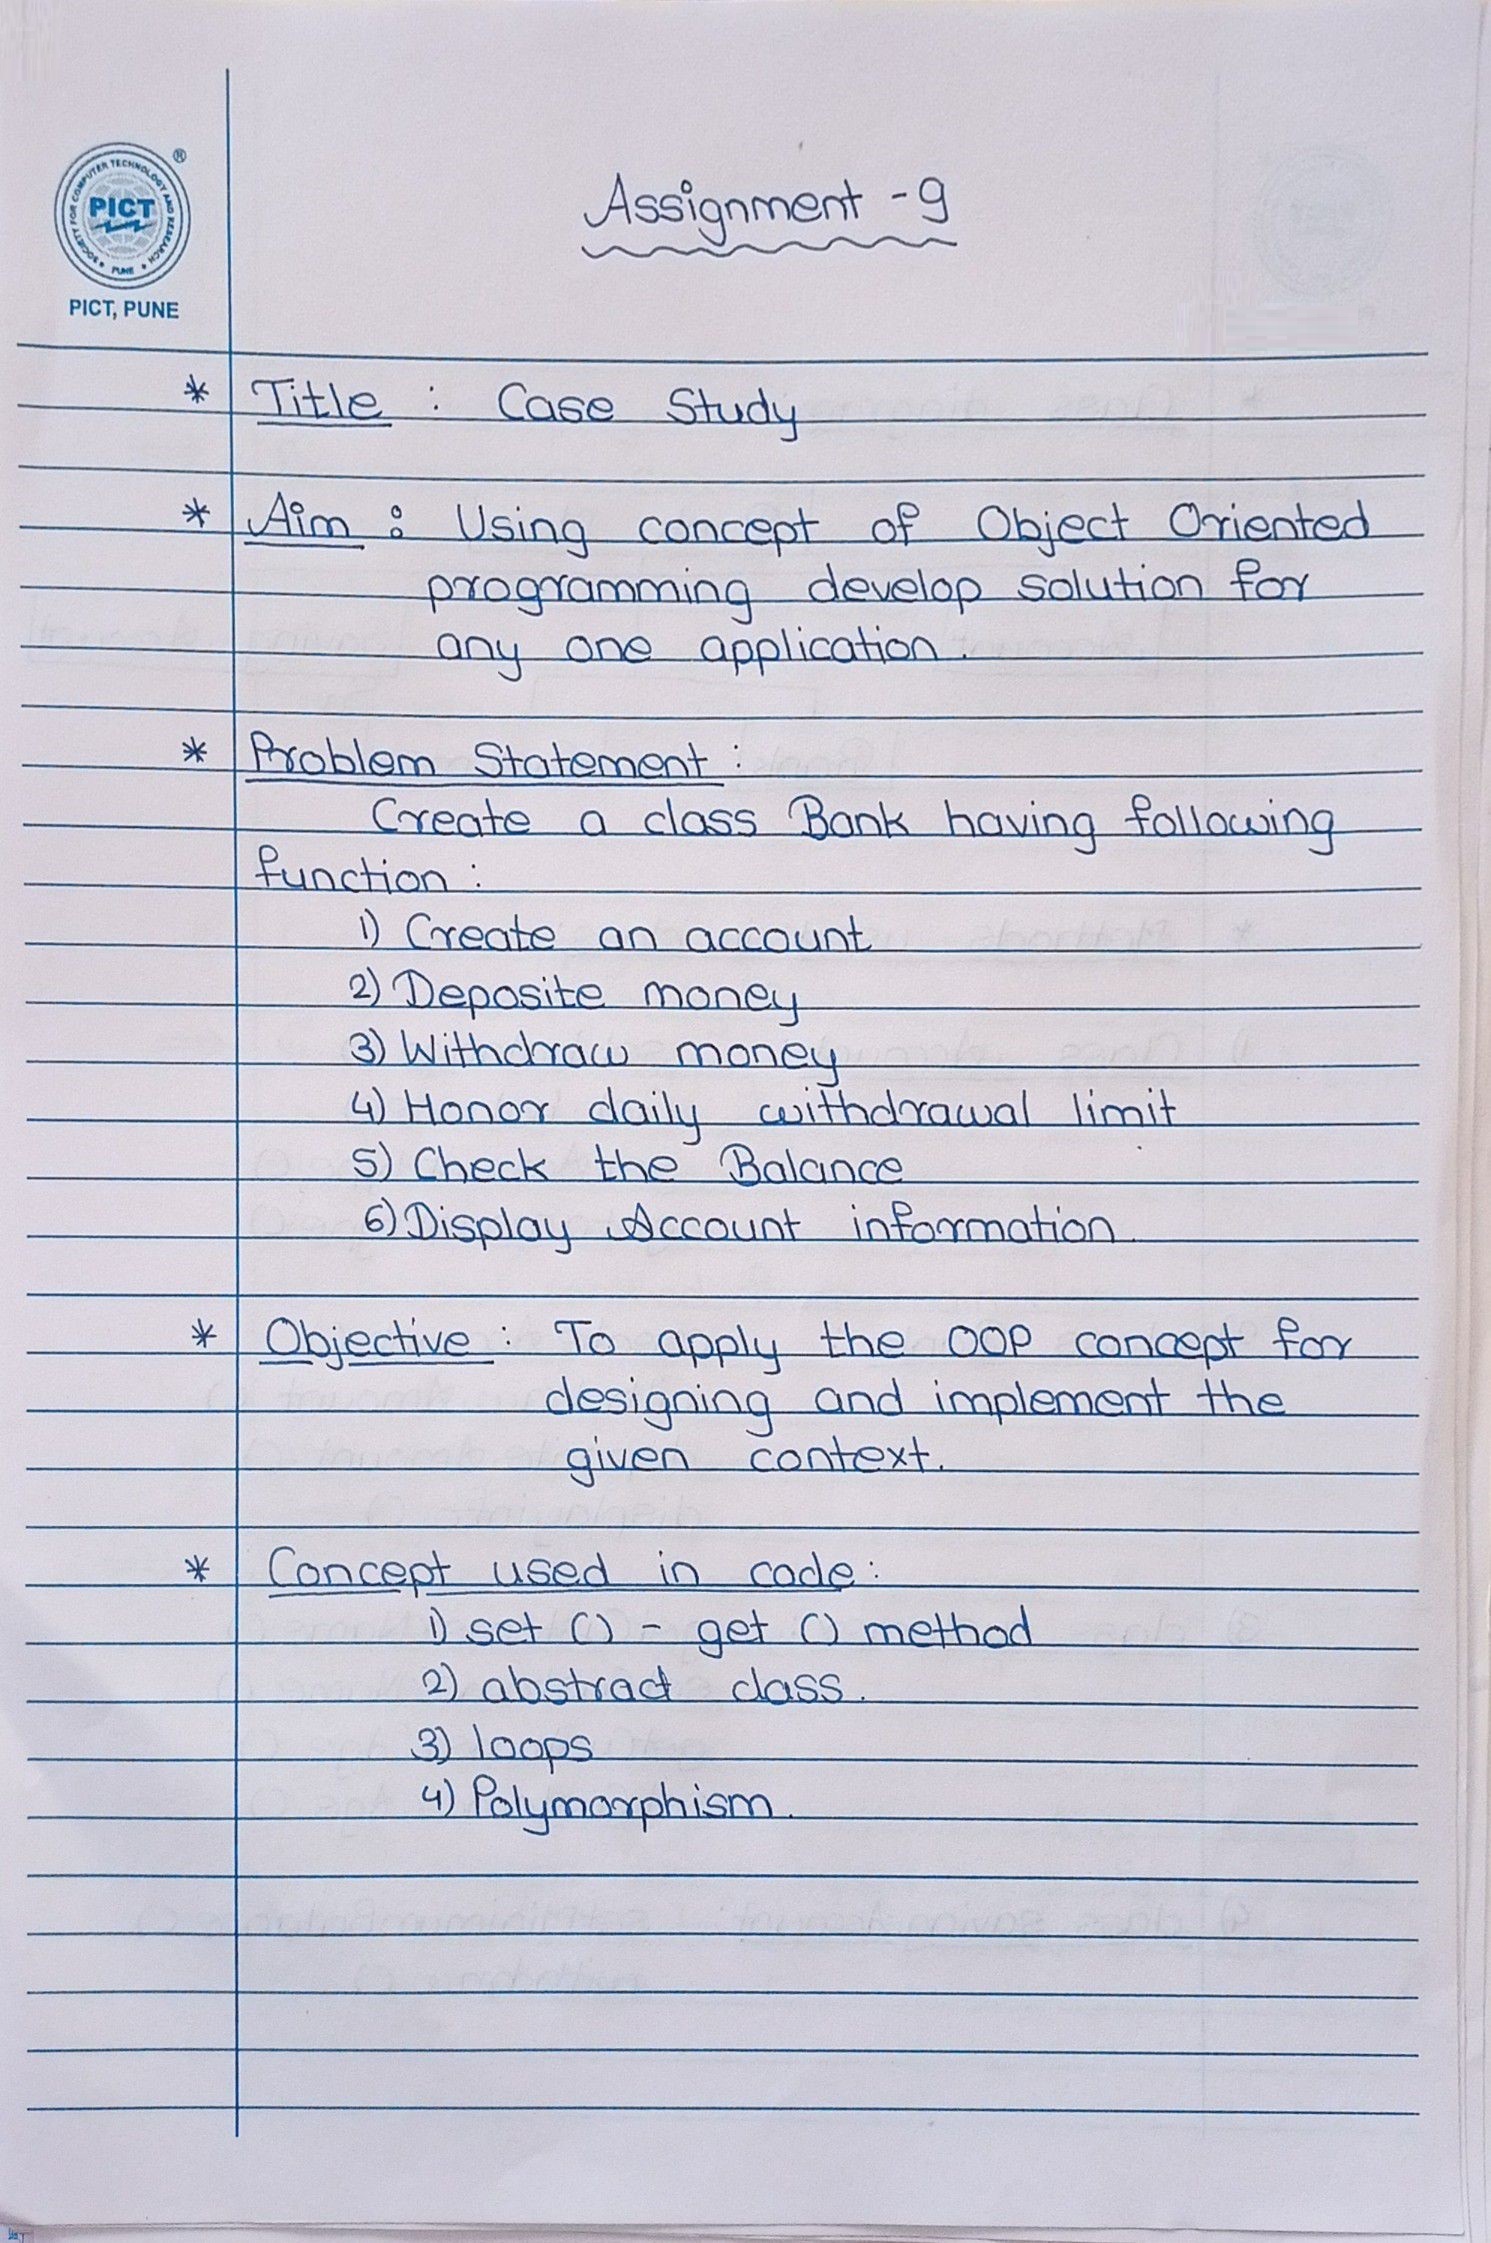 SOCIETY FOR COMPUTER TECHNOLOGY AND RESEARCH
PICT
PUNE
®
PICT, PUNE
Assignment - 9
* Title : Case Study
* Aim : Using concept of Object Oriented
programming develop solution for
any one application.
* Problem Statement :
Create a class Bank having following
function :
1) Create an account
2) Deposite money
3) Withdraw money
4) Honor daily withdrawal limit
5) Check the Balance
6) Display Account information.
* Objective : To apply the OOP concept for
designing and implement the
given context.
* Concept used in code :
1) set () - get () method
2) abstract class.
3) loops
4) Polymorphism.